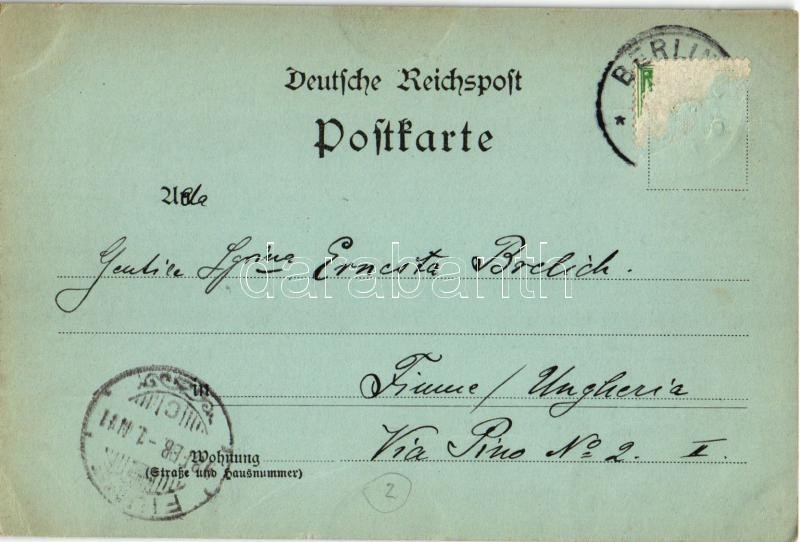 BERLIN
Deutsche Reichspost
Postkarte
Alla
Gentile Sgrina Ernesta Brelich.
darabanth
in Fiume / Ungheria
Via Pino No 2. II.
Wohnung
(Straße und Hausnummer)
FEB
2